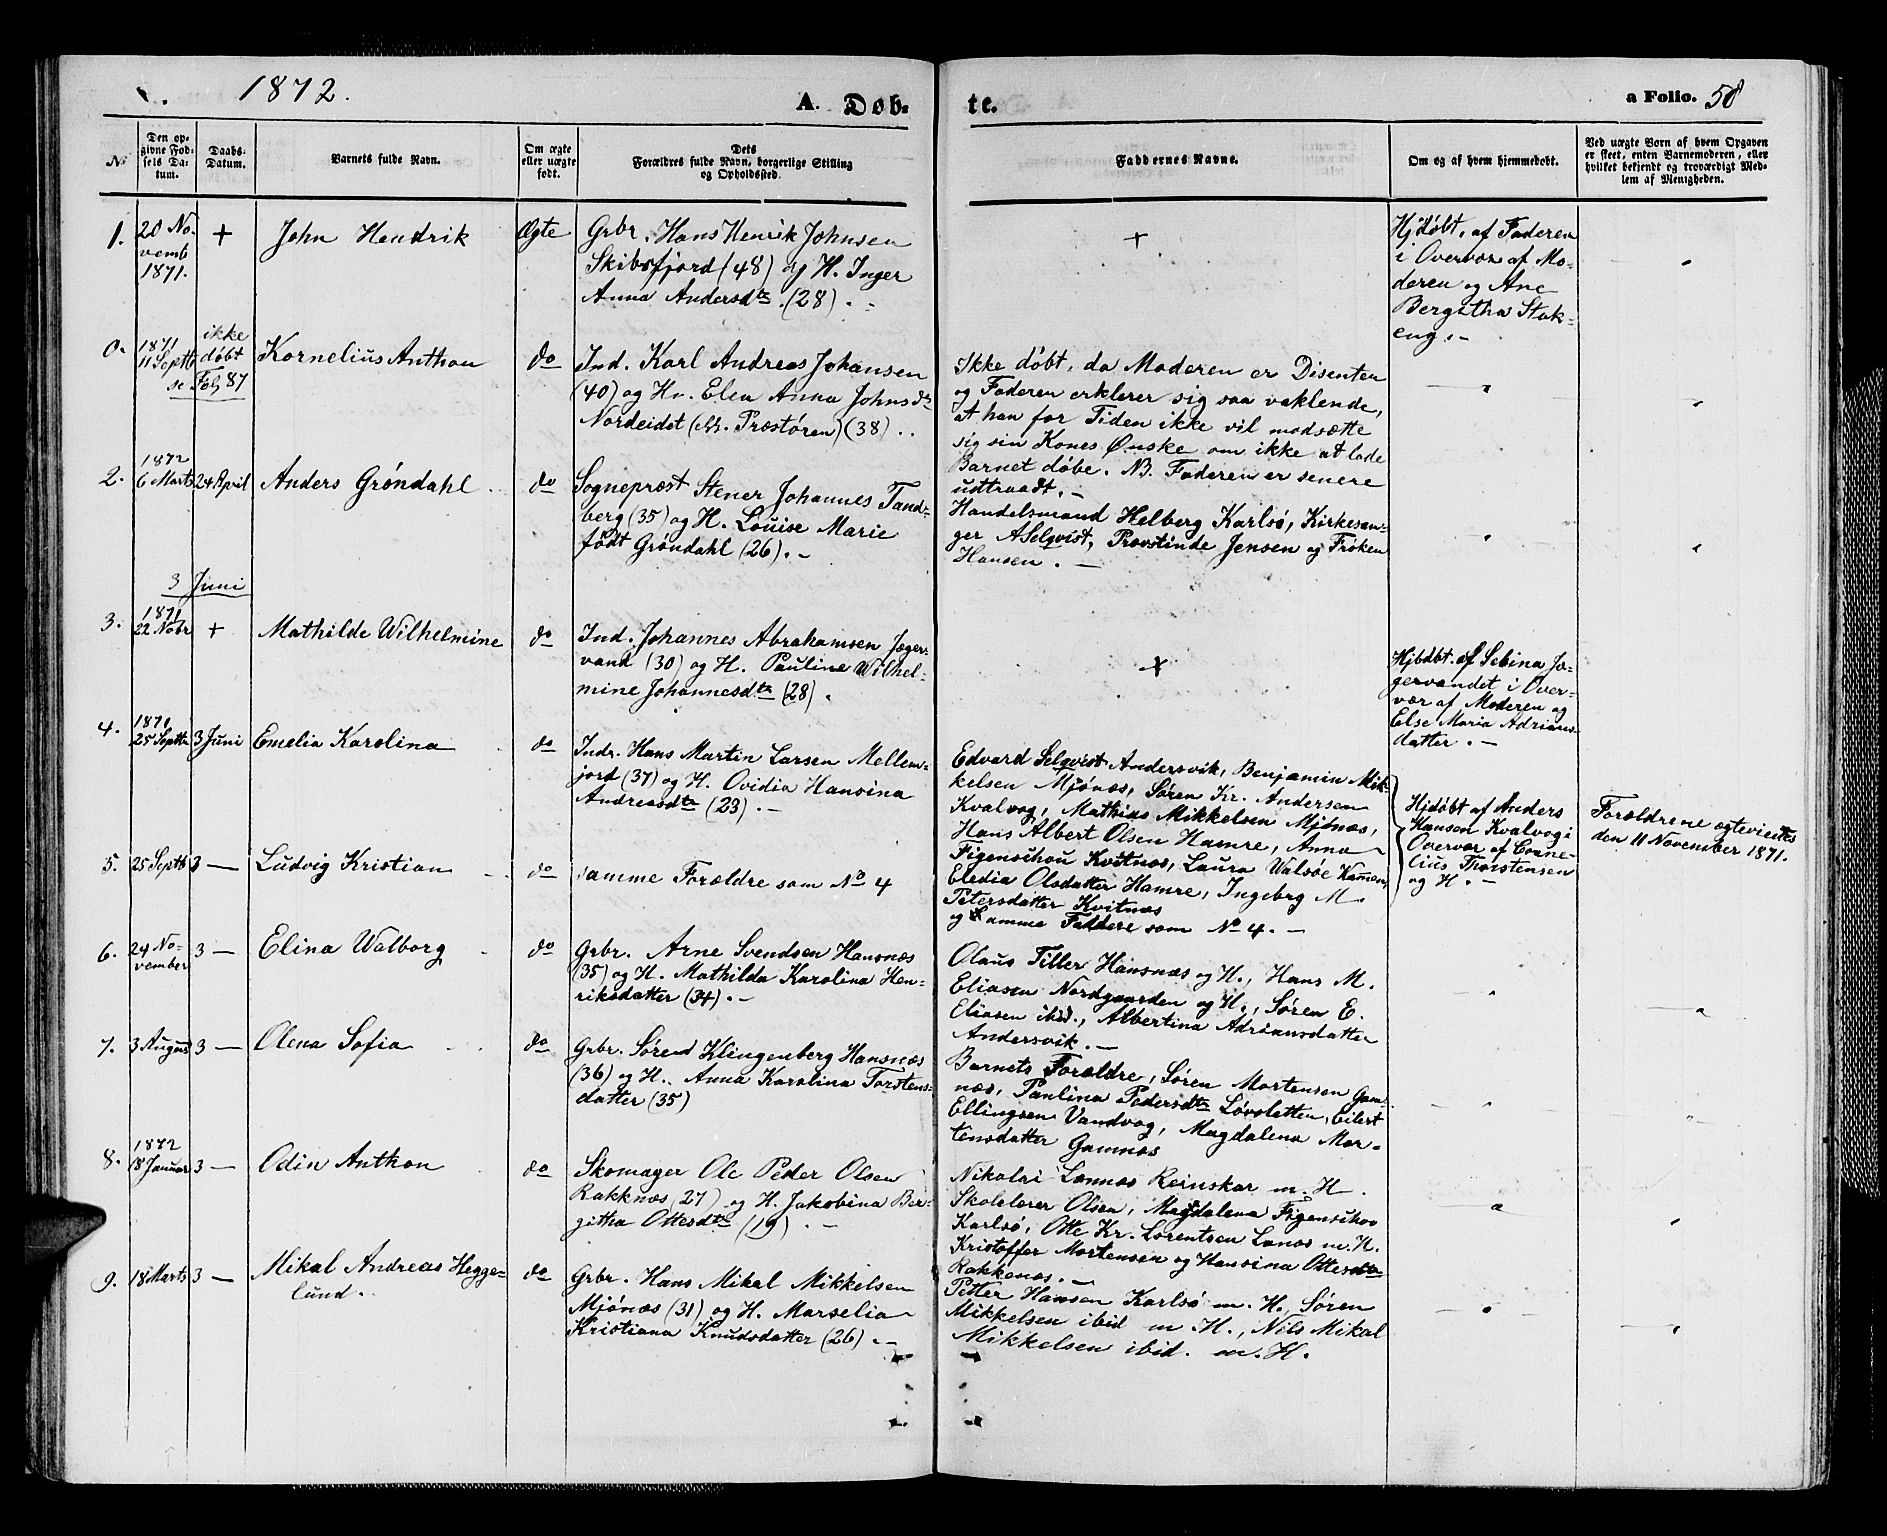 1872.
A. Døb-
te.
a Folio. 58
No
Den op-
givne Fød-
sels Da-
tum.
Daabs-
Datum.
Barnets fulde Navn.
Om ægte
eller uægte
født.
Dets
Forældres fulde Navn, borgerlige Stilling
og Opholdssted.
Faddernes Navne.
Om og af hvem hjemmedøbt.
Ved uægte Børn af hvem Opgaven
er skeet, enten Barnemoderen, eller
hvilket bekjendt og troværdigt Med-
lem af Menigheden.
1.
20 No-
vemb
1871.
+
John Hendrik
Ægte
Grbr. Hans Henrik Johnsen
Skibsfjord (48) og H. Inger
Anna Andersdtr. (28).
+
Hjdøbt. af Faderen
i Overvær af Mo-
deren og Ane
Bergitha Stak-
eng.
0.
1871
11 Septb
se
ikke
døbt
Folj 87
Kornelius Anthon
do
Ind. Karl Andreas Johansen
(40) og Hu. Elen Anna Johnsdtr
Nordeidet ( Præstøren) (38) ..
Ikke døbt, da Moderen er Disenten
og Faderen erklerer sig saa vaklende,
at han for Tiden ikke vil modsætte
sig sin Kones Ønske om ikke at lade
Barnet døbe. NB. Faderen er senere
udtraadt.
2.
1872
6 Marts
24 April
Anders Grøndahl
do
Sognepræst Stener Johannes Tand-
berg (35) og H. Louise Marie
født Grøndahl (26).
Handelsmand Helberg Karlsø, Kirkesan-
ger A Selqvist, Provstinde Jensen og Frøken
Hansen.
3 Juni
3.
1871
22 Nobr
+
Mathilde Wilhelmine
do
Ind. Johannes Abrahamsen Jæger-
vand (30) og H. Pauline Wilhel-
mine Johannesdtr (28).
+
Hjbdbt. af Sebina Jæ-
gervandet i Over-
vær af Moderen og
Else Maria Adrians-
datter.
4.
1871
25 Septbr
3 Juni
Emelia Karolina
do
Indr. Hans Martin Larsen Mellem-
jord (37) og H. Ovidia Hansina
Andreasdtr (23).
Edvard Selqvist Andersvik, Benjamin Mik-
kelsen Mjónæs, Søren Kr. Andersen
Kvalvog, Mathias Mikkelsen Mjónæs,
Hans Albert Olsen Hamre, Anna
Figenschou Kvitnæs, Laura Walsøe Kamen,
Eledia Olsdatter Hamre, Ingebrg M.
Petersdatter Kvitnæs
Hjdøbt af Anders
Hansen Kvalvog i
Overvær af Corne-
lius Thorstensen
og H.
Forældrene egteviedes
den 11 November 1871.
5.
25 Septb
3
Ludvig Kristian
do
samme Forældre som No 4
og Samme Faddere som No 4.
6.
24 No-
vember
3
Elina Walborg
do
Grbr. Arne Svendsen Hansnæs
(35) og H. Mathilda Karolina Hen-
riksdatter (34).
Olaus Tiller Hansnæs og H., Hans M.
Eliasen Nordgaarden og H., Søren E.
Eliasen ibid., Albertina Adriansdatter
Andersvik.
7.
3 August
3
Olena Sofia
do
Grbr. Søren Klingenberg Hansnæs
(36) og H. Anna Karolina Torstens-
datter (35)
Barnets Forældre, Søren Mortensen Gam-
næs, Paulina Pedersdtr Løvsletten, Eilert
Ellingsen Vandvog, Magdalena Mor-
tensdatter Gamnæs
8.
1872
18 Januar
3
Odin Anthon
do
Skomager Ole Peder Olsen
Rakknæs (27) og H. Jakobina Ber-
githa Ottesdtr (19).
Nikolai Lannæs Reinskar m. H.
Skolelærer Olsen, Magdalena Figenschou
Karlsø, Otte Kr. Lorentsen Lanæs m. H.
Kristoffer Mortensen og Hansina Ottesdtr
Rakkenæs.
9.
18 Marts
3
Mikal Andreas Hegge-
lund.
do
Grbr. Hans Mikal Mikkelsen
Mjónæs (31) og H. Marselia
Kristiana Knudsdatter (26).
Petter Hansen Karlsø m. H., Søren
Mikkelsen ibid m. H., Nils Mikal
Mikkelsen ibid. m. H.